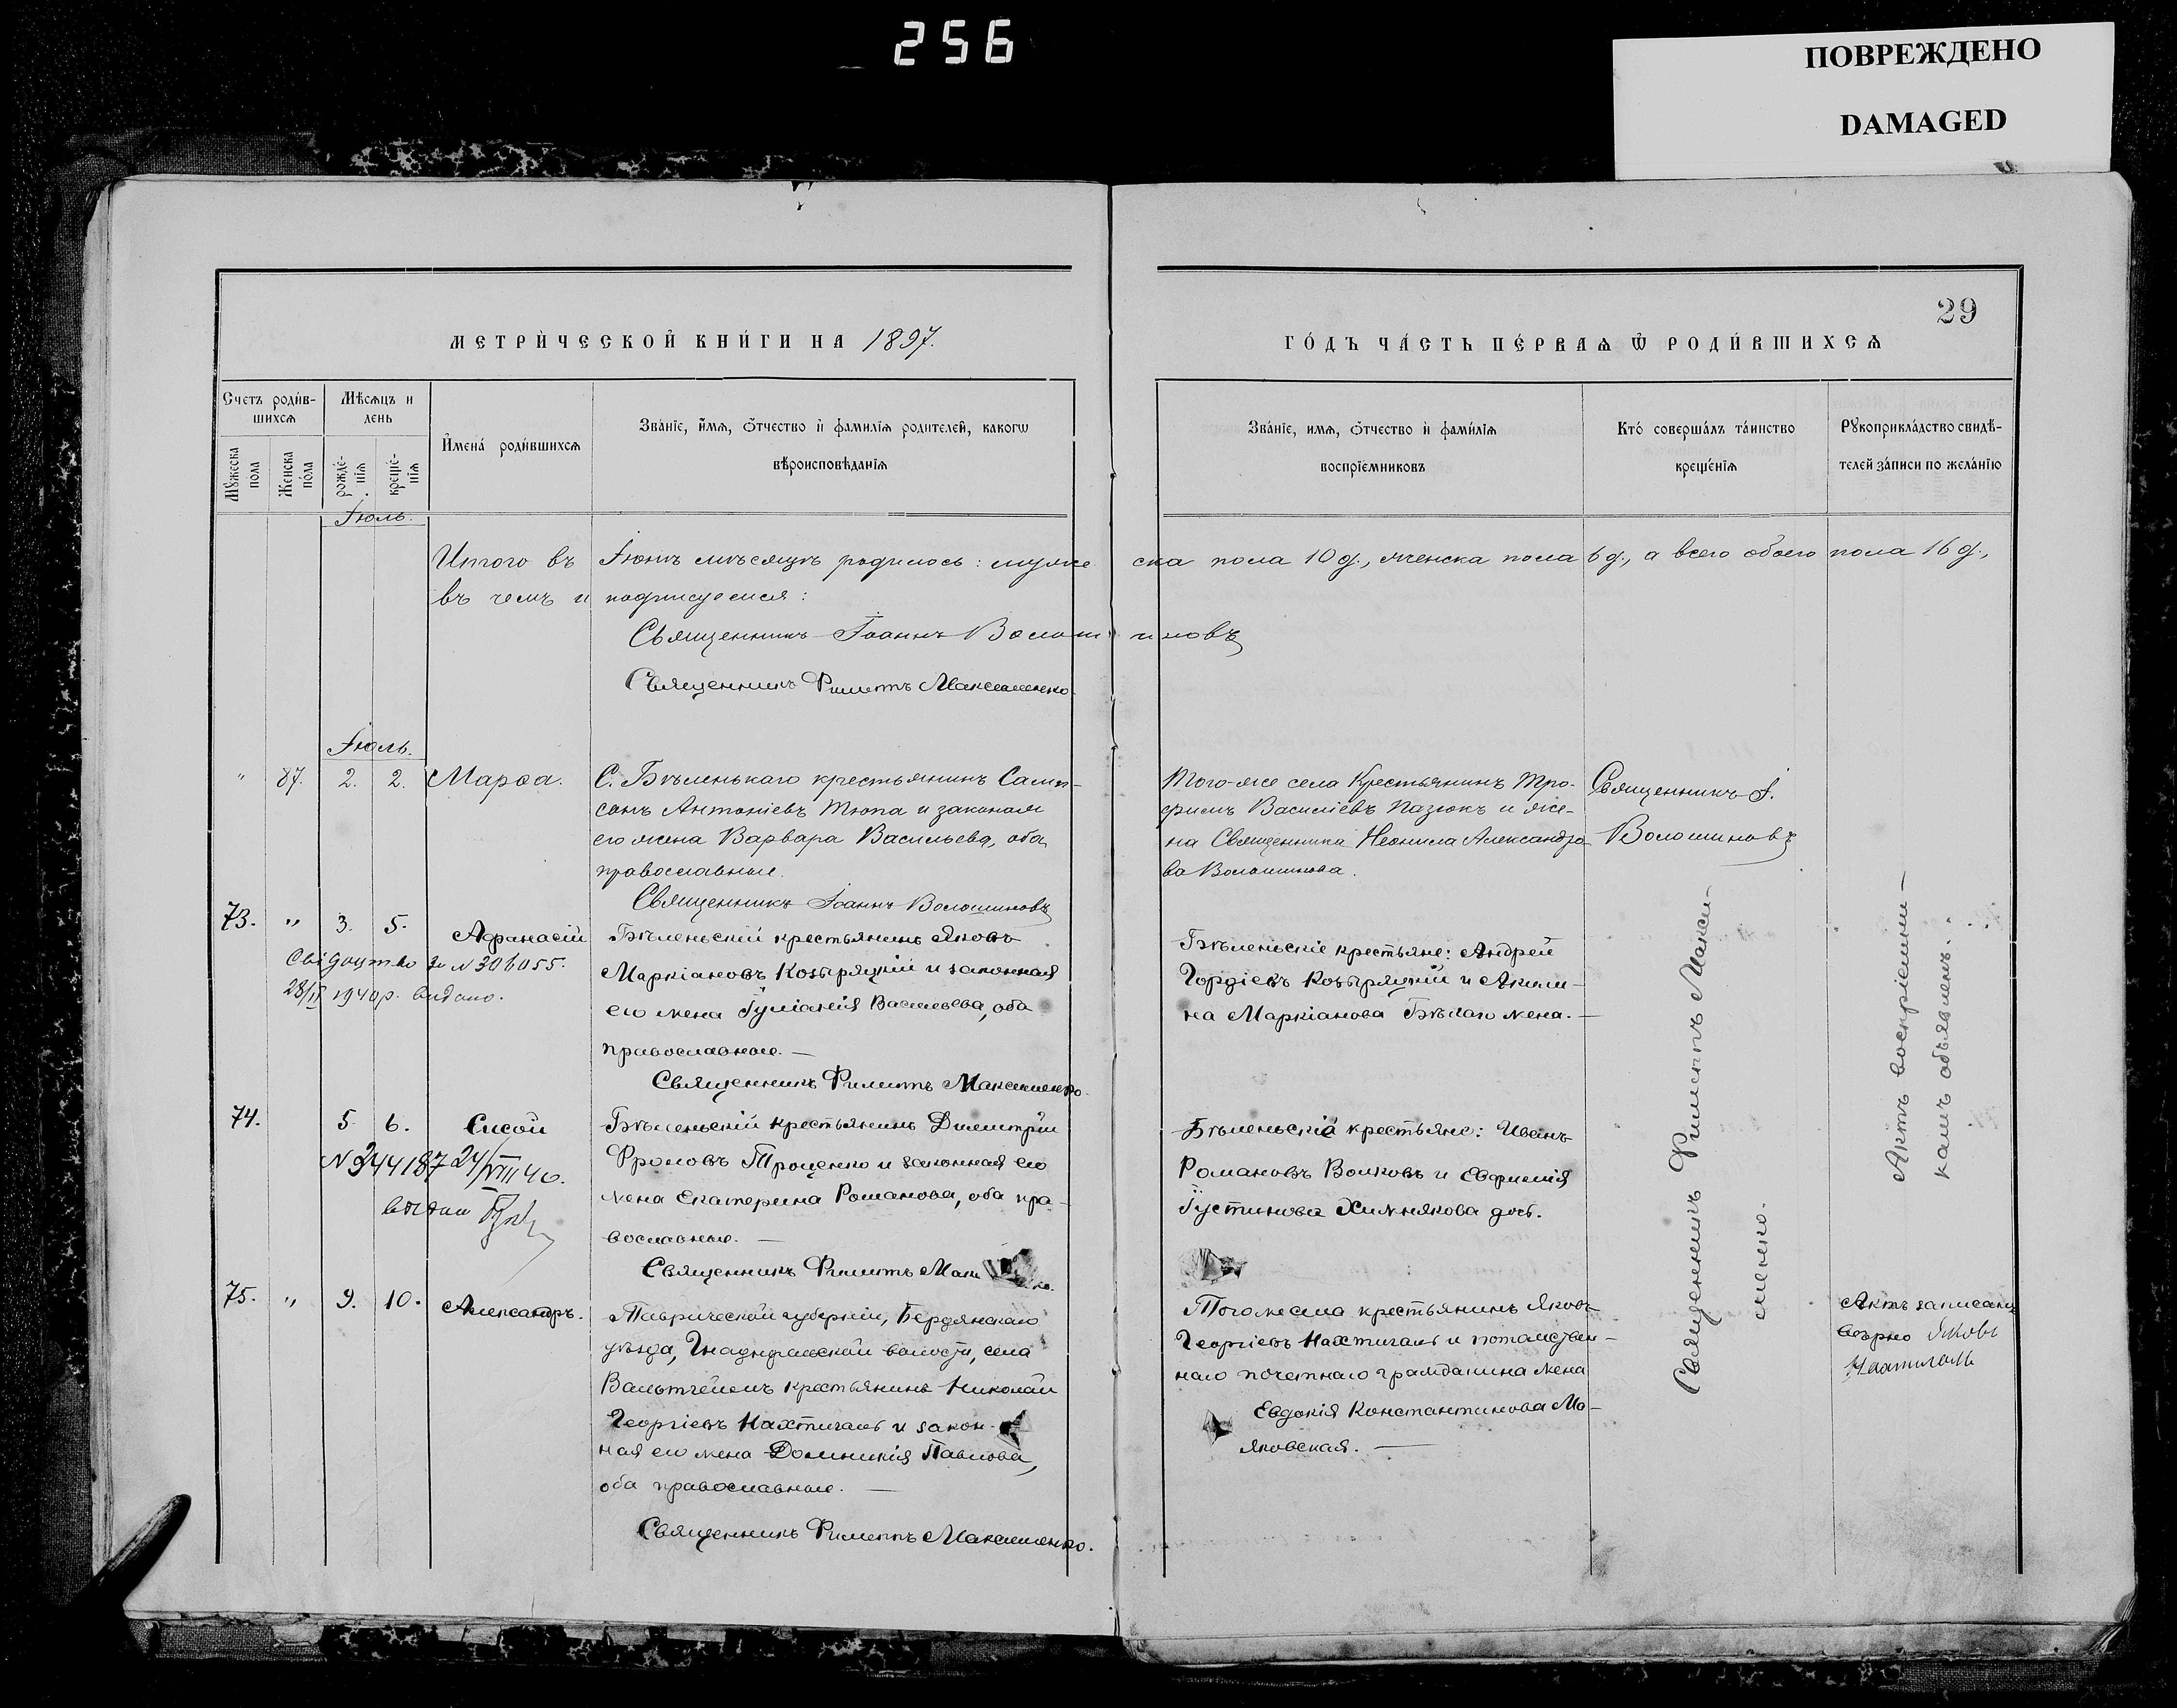 256
ПОВРЕЖДЕНО
DAMAGED
29
МЕТРИ́ЧЕСКОЙ КНИ́ГИ НА 1897.
ГО́ДЪ ЧА́СТЬ ПЕ́РВАѦ Ѿ РОДИ́ВШИХСѦ
Счетъ роди́в-
шихсѧ
Мꙋжеска
пола
Женска
по́ла
Мѣ́сѧцъ и
день
рожде́-
нїѧ
креще́-
нїѧ
И҆мена́ роди́вшихсѧ
Зва́нїе, и҆́мѧ, ѻ҆́тчество и҆ фами́лїѧ родителей, какогѡ
вѣ́роисповѣ́данїѧ
Зва́нїе, имѧ, ѻ҆́тчество и҆ фами́лїѧ
воспрїе́мниковъ
Кто́ соверша́лъ та́инство
креще́нїѧ
Рꙋкоприкла́дство свидѣ́-
телей за́писи по жела́нїю
Іюль.
Итого въ Іюнѣ мѣсяцѣ родилось: мужеска пола 10 д., женска пола 6 д., а всего обоего пола 16 д.,
въ чемъ и подписуемся:
Священникъ Іоаннъ Волошиновъ
Священникъ Филиппъ Максименко
Іюль.
" 87. 2. 2. Марѳа.
С. Бѣленькаго крестьянинъ Самп-
сонъ Антоніевъ Тюпа и законая
его жена Варвара Васильева, оба
православные.
Священникъ Іоаннъ Волошиновъ
Того-же села Крестьянинъ Тро-
фимъ Василіевъ Пазюкъ и же-
на Священника Неонила Александро-
ва Волошинова.
Священникъ І.
Волошиновъ
73. " 3. 5. Афанасій
Свідоцтво за N 306055.
28/ІІ 1940р. видано.
Бѣленьскій крестьянинъ Яковъ
Маркіановъ Козыряцкій и законная
его жена Іуліанія Васильева, оба
православные. —
Священникъ Филиппъ Максименко.
Бѣленьскіе крестьяне: Андрей
Гордіевъ Козыряцкій и Акили-
на Маркіанова Бѣлаго жена. —
74. 5. 6. Сисой
N 344187 24/VIII 40.
видан
Бѣленьскій крестьянинъ Димитрій
Фроловъ Троценко и законная его
жена Екатерина Романова, оба пра-
вославные. —
Священникъ Филиппъ Макси
Бѣленьскіе крестьяне: Иванъ
Романовъ Волковъ и Евфимія
Іустинова Хижнякова доч.
75. " 9. 10. Александръ.
Таврической губерніи, Бердянскаго
уѣзда, Гнаденфельской волости, села
Вальтгеймъ крестьянинъ Николай
Георгіевъ Нахтигаль и закон-
ная его жена Домникія Павлова,
оба православные. —
Священникъ Филиппъ Максименко.
Того же села крестьянинъ Яковъ
Георгіевъ Нахтигаль и потомствен-
наго почетнаго гражданина жена
Евдокія Константинова Мо-
яковская. —
Священникъ Филиппъ Макси-
менко.
Актъ воспріемни-
камъ объявленъ.
Актъ записанъ
вѣрно Яковъ
Нахтигаль